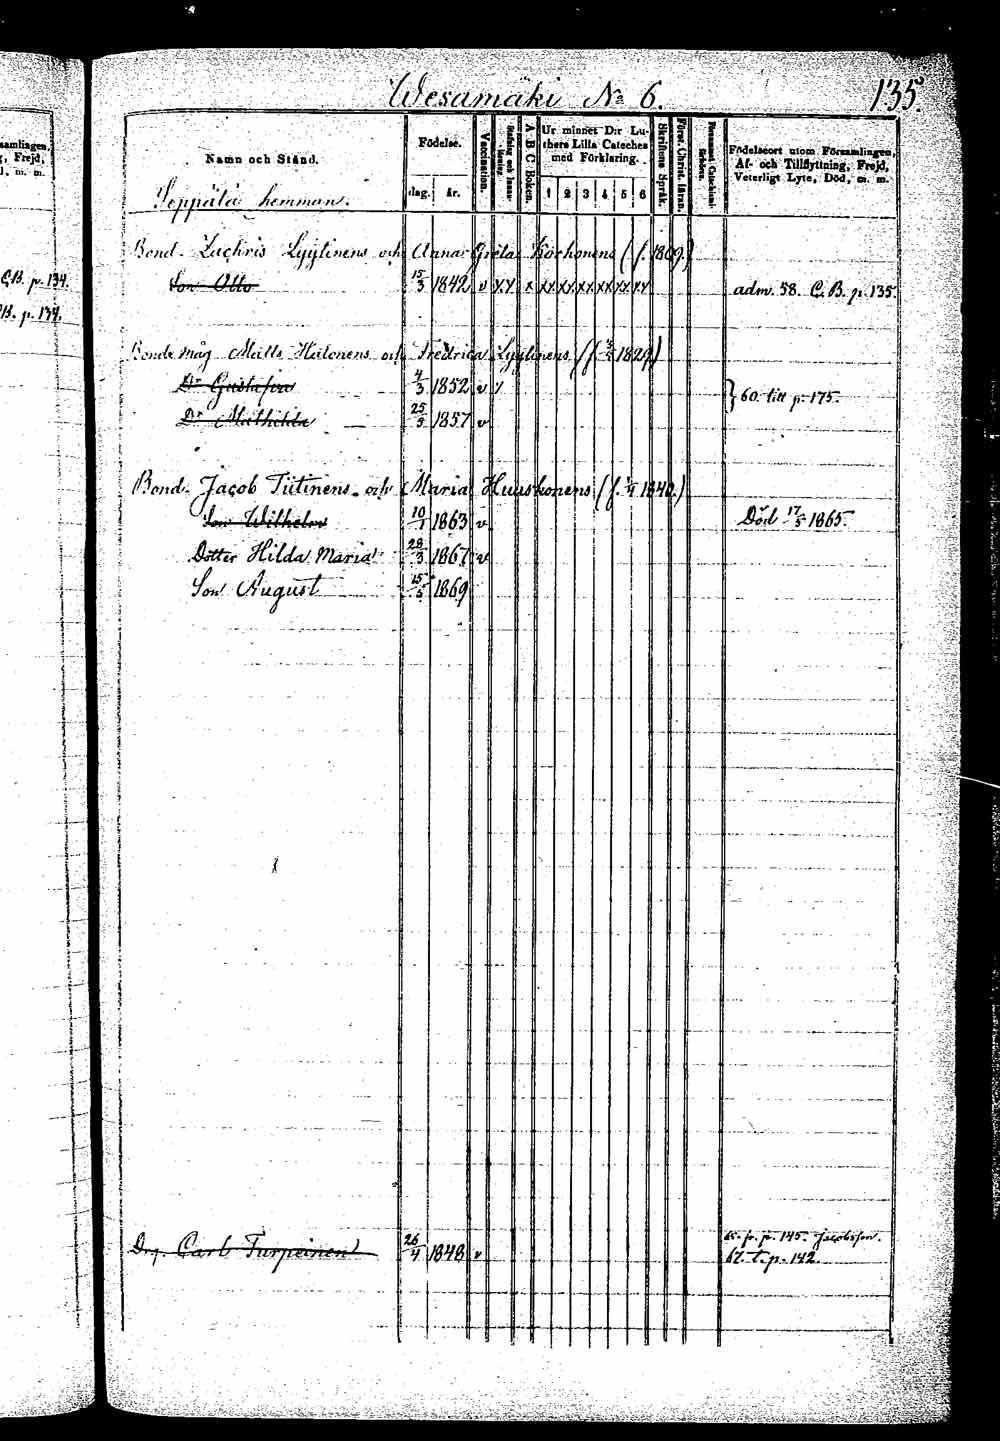 Wesamäki № 6.
135.
samlingen,
g, Frejd,
d, m. m.
C.B. p. 134.
B. p. 134.
Namn och Stånd.
Födelse.
dag. år.
Vaccination.
A B C Boken.
Ur minnet D:r Lu-
thers Lilla Cateches
med Förklaring.
1 2 3 4 5 6
Skriftens Språk.
Först. Christ. läran.
Födelseort utom Församlingen,
Af- och Tillflyttning, Frejd,
Veterligt Lyte, Död, m. m.
Seppälä hemman.
Bond. Zachris Lyytinens och Anna Greta Korhonens (f. 1809.)
Son Otto 15/3 1842 v xx x xx xx xx xx xx xx adm. 58. C. B. p. 135.
Bonde måg Matts Hälonens och Fredrica Lyytinens (f. 1829)
Dr Gustafva 4/3 1852 v
} 60. till p. 175.
Dr Mathilda 25/5 1857 v
Bond. Jacob Tiitinens och Maria Huuskonens (f. 1840.)
Son Wilhelm 10/1 1863 v Död 17/5 1865.
Dotter Hilda Maria 28/3 1867 v
Son August 15/5 1869
Drg. Carl Turpeinen 26/4 1848 v
fr. p. 145. Jacobsson.
62. t. p. 142.